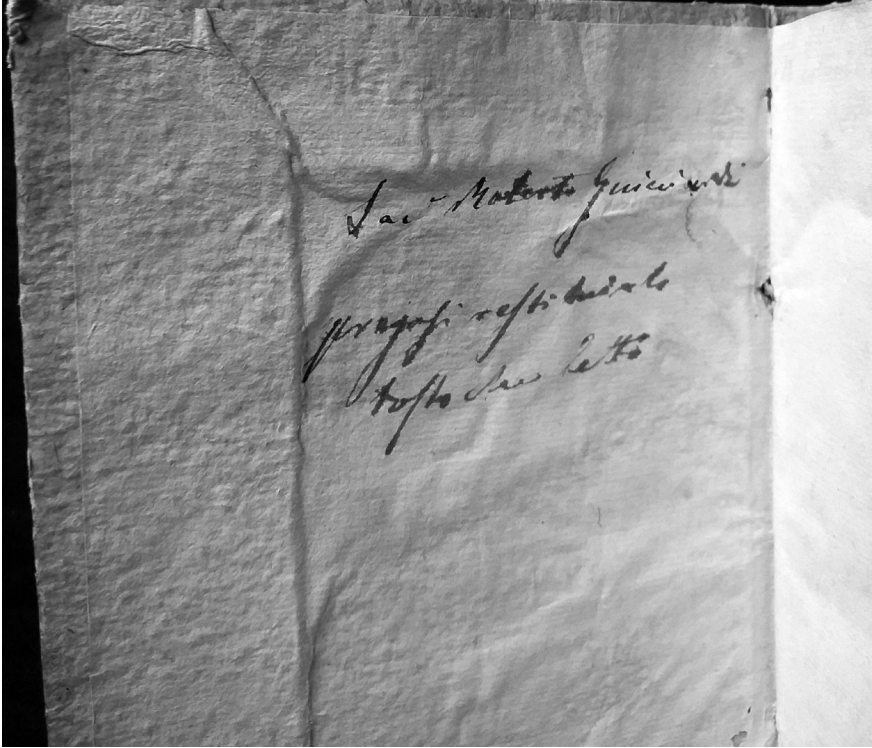 Sac. Roberto Guicciardi
pregasi restituirlo
tosto che letto